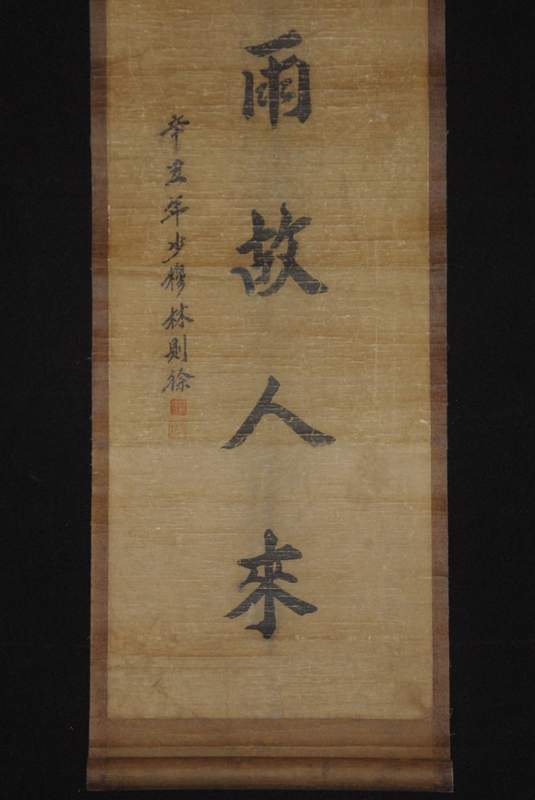 雨故人來
辛丑年少穆林則徐